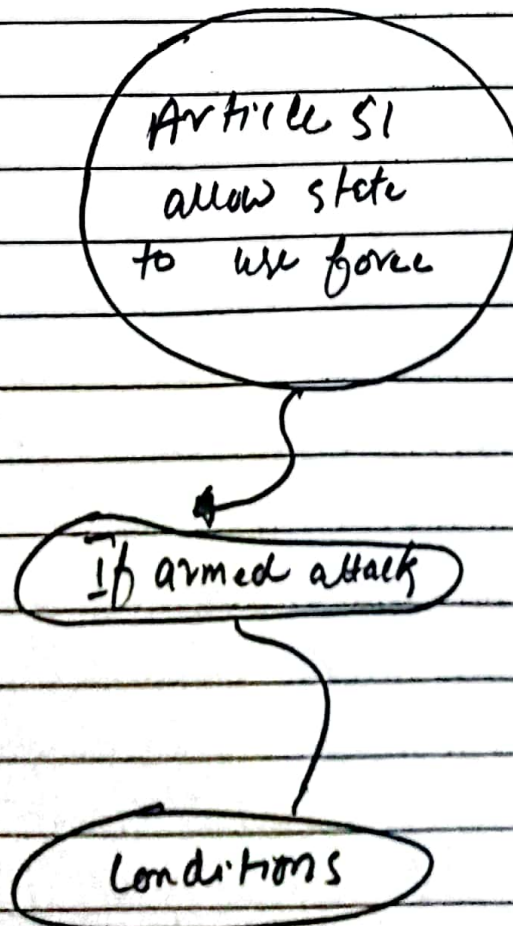 Article 51
allow state
to use force
If armed attack
Conditions